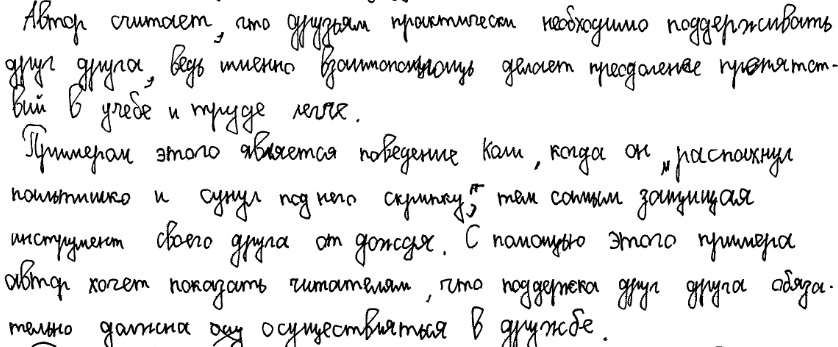 Автор считает, что друзьям практически необходимо поддерживать
друг друга, ведь именно взаимопомощь делает преодоление препятст-
вий в учебе и труде легче.
Примером этого является поведение Коли, когда он "распахнул
пальтишко и сунул под него скрипку", тем самым защищая
инструмент своего друга от дождя. С помощью этого примера
автор хочет показать читателям, что поддержка друг друга обяза-
тельно должна осуществляться в дружбе.